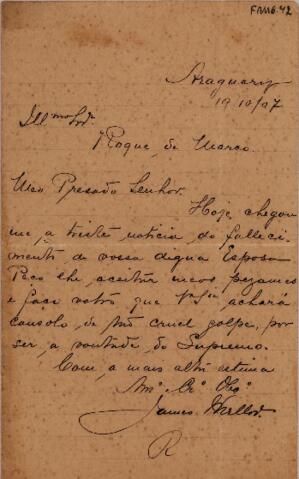 FRM6.42
Araguary
19/10/07
Illmo Snr.
Roque de Marco.
Meu Presado Senhor.
Hoje chegou
me, a triste noticia do falleci-
mento de vossa digna Esposa
Peco lhe, aceitar meos pezames
e faço votos que Va Sia achará
consolo, de tão cruel golpe, por
ser, a vontade do Supremo.
Com, a mais alta estima
Amo. Cro. Obro
James
R